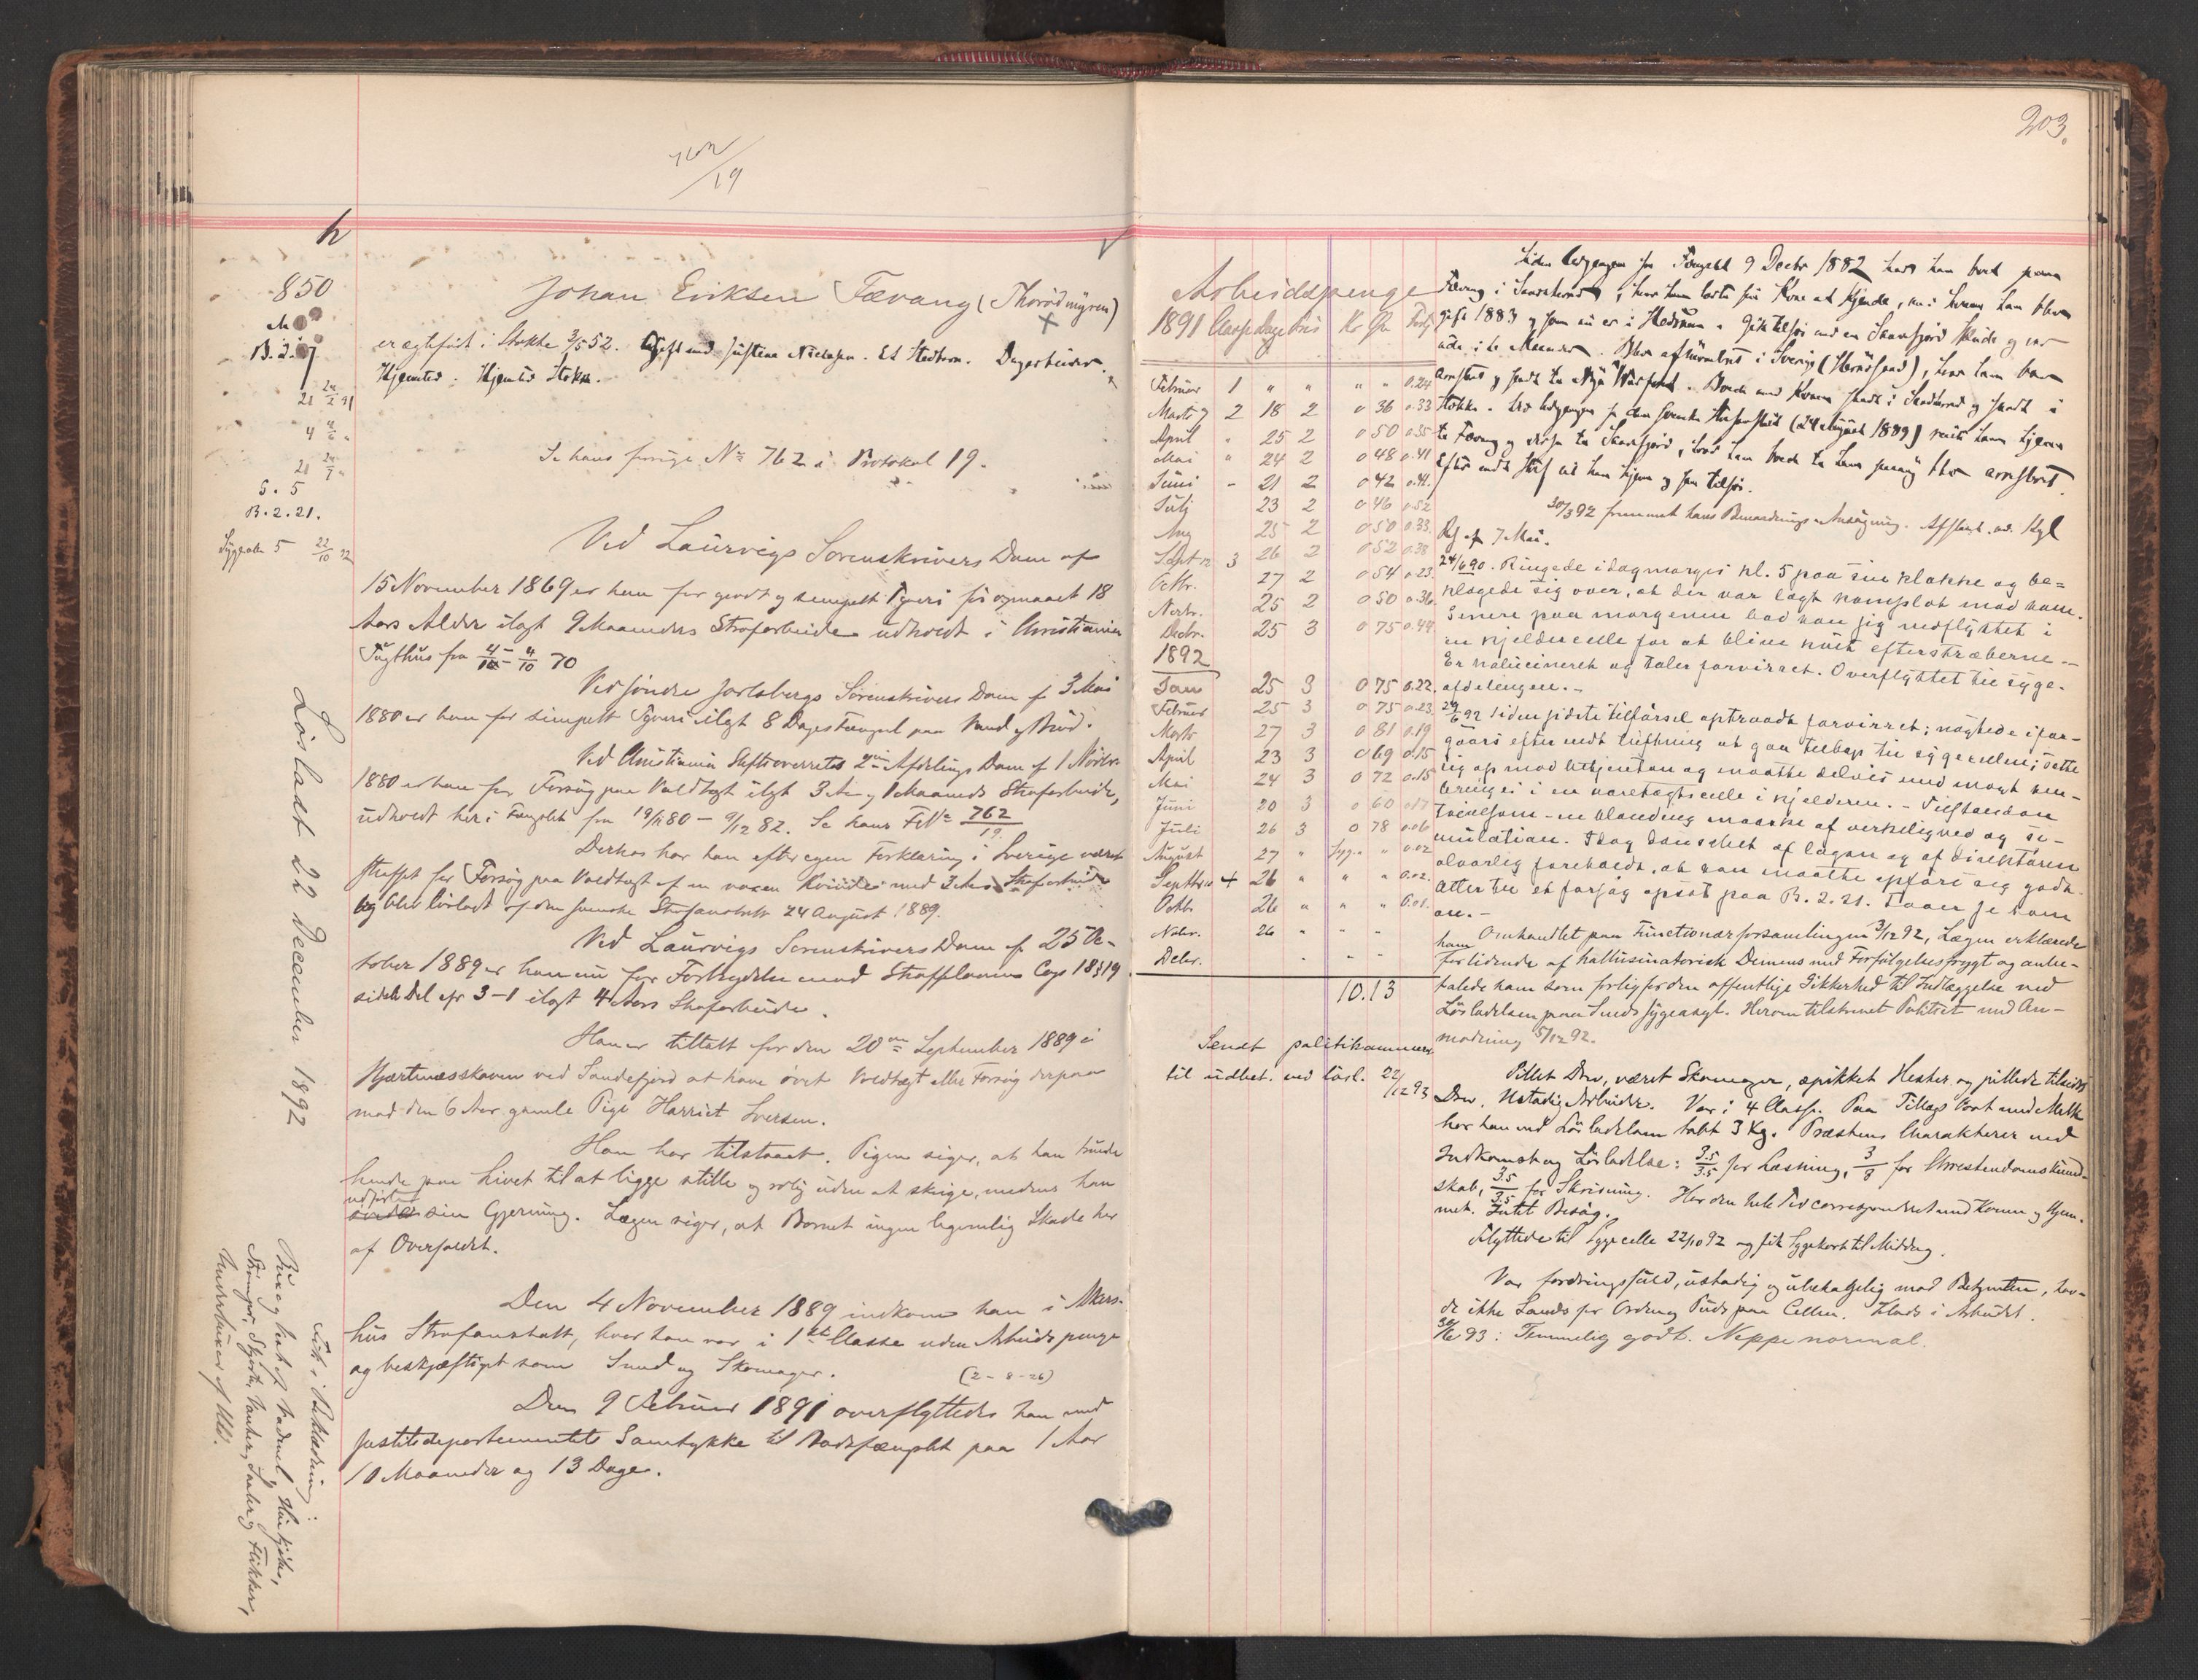 203.
762
19
h
850
B. 2. 9
21 24/2 91
4 4/6 "
21 24/7 "
S. 5
B. 2. 21.
Sygecelle 5 22/10 92
Løsladt 22 December 1892
Fik i Beklædning:
Strømper, Skjorte,
Johan Eriksen Fævang (Thorødmyren)
er ægtefødt i Stokke 3/5 52. Gift med Justine Nielsen. Et Stedbarn. Dagarbeider.
Hjemsted: Hjemsted Stokke.
Se hans forrige No 762 i Protokol 19.
Ved Laurvigs Sorenskrivers Dom af
15 November 1869 er han for grovt og simpelt Tyveri før opnaaet 18
Aars Alder ilagt 9 Maaneders Strafarbeide udholdt i Christiania
Tugthus fra 4/1 - 4/10 70
Ved søndre Jarlsbergs Sorenskrivers Dom af 3 Mai
1880 er han for simpelt Tyveri ilagt 8 Dages Fængsel paa Vand og Brød.
Ved Christiania Stiftsoverrets 2den Afdelings Dom af 1 Novbr
1880 er han for Forsøg paa Voldtægt ilagt 3 Aar og 1 Maaneds Strafarbeide,
udholdt her i Fængslet fra 19/11 80 - 9/12 82. Se hans F No 762/19.
Derhos har han efter egen Forklaring i Sverige været
straffet for Forsøg paa Voldtægt af en voxen Kvinde med 3 Aars Strafarbeide
og blev løsladt af den svenske Strafanstalt 24 August 1889.
Ved Laurvigs Sorenskrivers Dom af 25 Oc-
tober 1889 er han nu for Forbrydelse mod Straffelovens Cap 18 § 19
sidste Del cfr 3-1 ilagt 4 Aars Strafarbeide.
Han er tiltalt for den 20de September 1889 i
Hjærtnæsskoven ved Sandefjord at have øvet Voldtægt eller Forsøg derpaa
mod den 6 Aar gamle Pige Harriet Iversen.
Han har tilstaaet. Pigen siger, at han truede
hende paa Livet til at ligge stille og rolig uden at skrige, medens han
udførte sin Gjerning. Lægen siger, at Barnet ingen legemlig Skade har
af Overfaldet.
Den 4 November 1889 indkom han i Akers-
hus Strafanstalt, hvor han var i 1ste Classe uden Arbeidspenge
og beskjæftiget som Smed og Skomager. (2 - 8 - 26)
Den 9 Februar 1891 overflyttedes han med
Justitsdepartementets Samtykke til Bodsfængslet paa 1 Aar
10 Maaneder og 13 Dage.
Arbeidspenge
1891 Classe Dage Pris Kr Øre
Februar 1 " " " " 0.24
Marts 7 2 18 2 0 36 0.33
April " 25 2 0 50 0.35
Mai " 24 2 0 48 0.41
Juni - 21 2 0 42 0.41
Julj 23 2 0 46 0.52
Aug 25 2 0 50 0.33
Sept 3 26 2 0 52 0.38
Octbr. 27 2 0 54 0.23
Novbr. 25 2 0 50 0.36
Decbr. 25 3 0 75 0.44
1892
Jan 25 3 0 75 0.22
Februar 25 3 0 75 0.23
Marts 27 3 0 81 0.19
April 23 3 0 69 0.15
Mai 24 3 0 72 0.15
Juni 20 3 0 60 0.17
Juli 26 3 0 78 0.06
August 27 " Syg. " 0.02
Septbr 4 26 " " " 0.02
Octb. 26 " " " 0.01
Novbr. 26 " " "
Decbr. " " "
10.13
Sendt politikammeret
til udbet. ved løsl. 22/12 92
Siden Udgangen fra Fængslet 9 Decbr 1882 har han boet paa
Fævang i Sandeherred, hvor han lærte sin Kone at kjende, med hvem han blev
gift 1883 og som nu er i Hedrum. Gik tilsøs med en Sandefjord Skude og var
ude i to Maaneder. Blev afmønstret i Sverige (Hernösand), hvor han blev
arresteret og sendt til Nya Warfvet. Boede med Konen snart i Sandeherred og snart i
Stokke. Ved Udgangen fra den svenske Strafanstalt (24 August 1889) reiste han hjem
til Fævang og derfra til Sandefjord, hvor han boede til han paany blev arresteret.
Efter endt Straf vil han hjem og saa tilsøs.
30/3 92 fremmet hans Benaadnings-Ansøgning. Afslaaet ved Kgl
Res af 7 Mai.
24/6 90. Ringede idagmorges kl. 5 paa sin klokke og be-
klagede sig over, at der var lagt komplot mod ham.
Senere paa morgenen bad han sig nedflyttet i
en kjeldercelle for at blive kvit efterstræberne.-
Er halucineret og taler forvirret. Overflyttet til syge-
afdelingen.-
29/6 92 siden sidste tilførsel optraadt forvirret; nægtede ifor-
gaars efter endt luftning at gaa tilbage til sygecellen; satte
sig op mod betjenten og maatte delvis med magt hen-
bringes i en varetægtscelle i kjelderen. - Tilstanden
tvivlsom - en blanding maaske af virkelighed og si-
mulation. Idag forestillet af lægen og af direktøren
alvorlig foreholdt, at han maatte opføre sig godt.
Atter til et forsøg opsat paa B. 2. 21.
Omhandlet paa Functionærforsamlingen 3/12 92, Lægen erklærede
ham for lidende af hallusinatorisk Demens med Forfølgelsesfrygt og anbe-
falede ham som farlig for den offentlige Sikkerhed til Indlæggelse ved
Løsladelsen paa Sindssygeasyl. Herom tilskrevet Politiet med An-
modning 5/12 92.
Pillet Drev, været Skomager, spikket Hester og pillede tilsidst
Drev. Ustadig Arbeider. Var i 4 Classe. Paa Tillægs Kost med Melk
har han ved Løsladelsen tabt 3 Kg. Præstens Charakterer ved
Indkomst og Løsladelse: 3.5/3.5 for Læsning, 3/3 for Christendomskund-
skab, 3.5/3.5 for Skrivning. Har den hele Tid correspondert med Konen og Hjem-
met. Intet Besøg.
Flyttedes til Sygecelle 22/10 92 og fik Sygekost til Middag.
Var fordringsfuld, ustadig og ubehagelig mod Betjenten, hav-
de ikke Sands for Orden og Puds paa Cellen. Klods i Arbeidet.
30/6 93: Temmelig godt. Neppe normal.